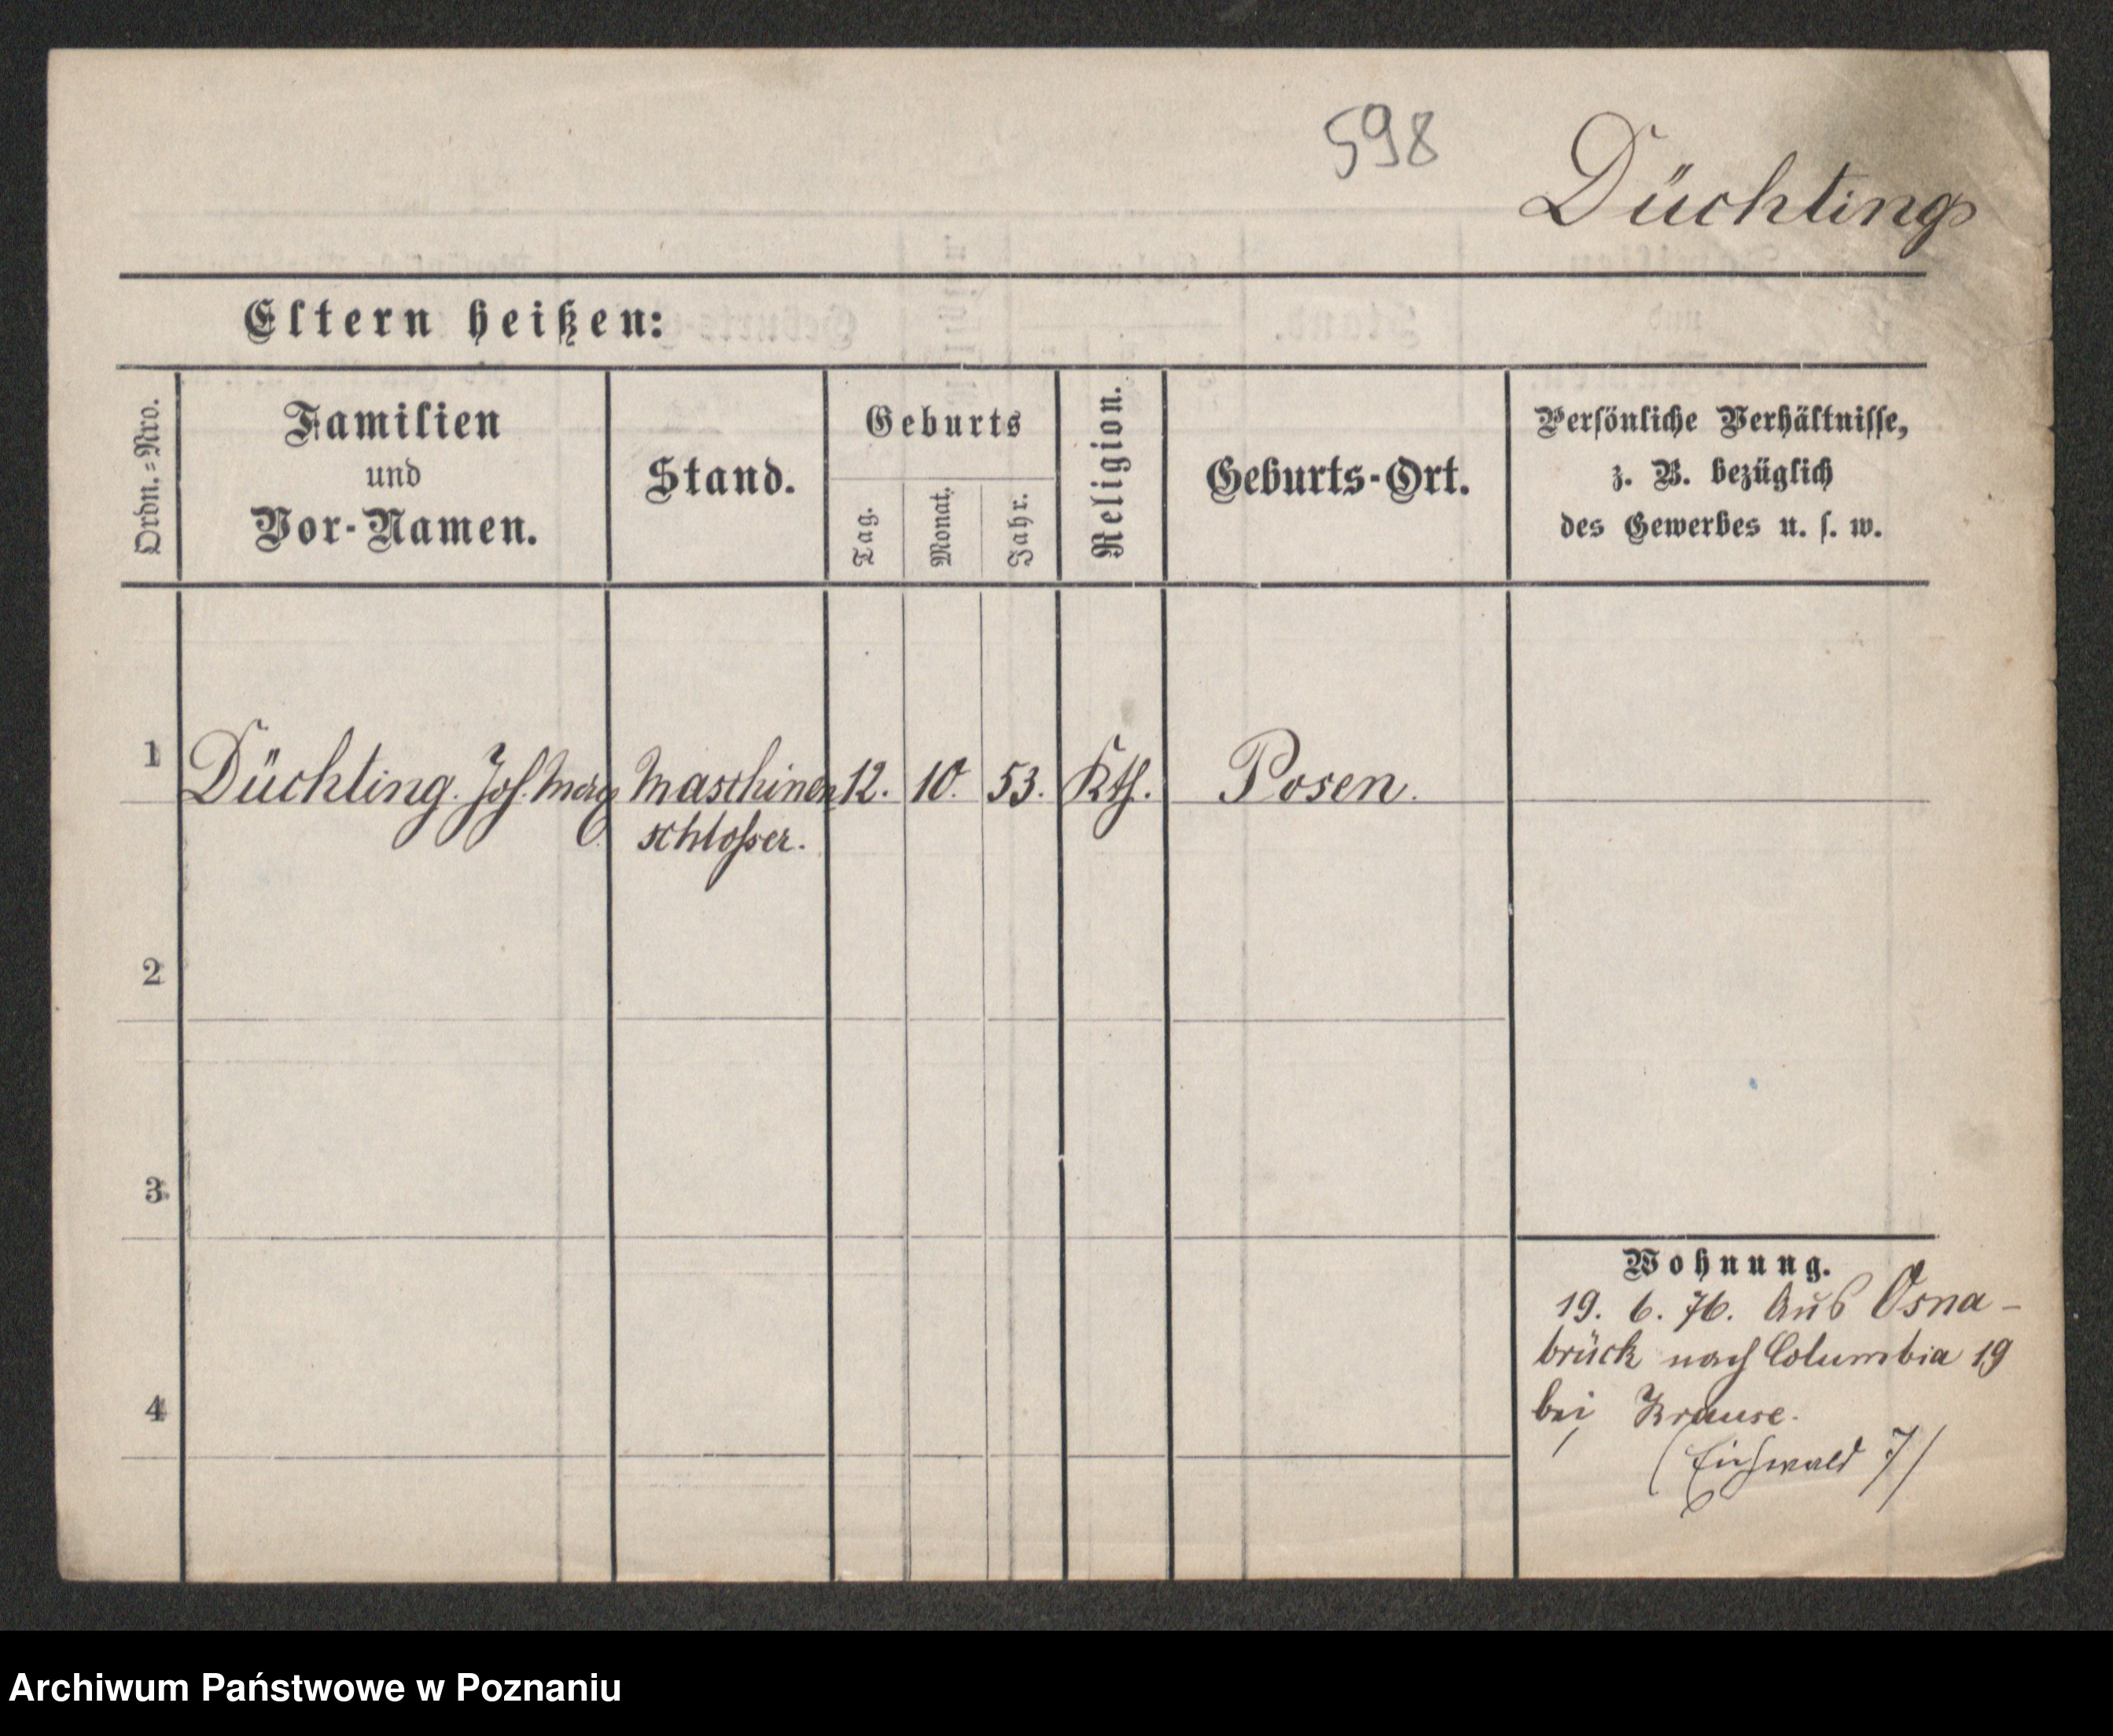 598
Düchting
Eltern heißen:
Ordn.=Nro.
Familien
und
Vor-Namen.
Stand.
Geburts
Tag.
Monat.
Jahr.
Religion.
Geburts-Ort.
Persönliche Verhältnisse,
z. B. bezüglich
des Gewerbes u. s. w.
1
Düchting. Jos.
Maschinen
schlosser.
12.
10.
53.
Kth.
Posen.
2
3
4
Wohnung.
19. 6. 76. Aus Osna-
brück nach Columbia 19
bei Krause.
(Eichwald 7)
Archiwum Państwowe w Poznaniu